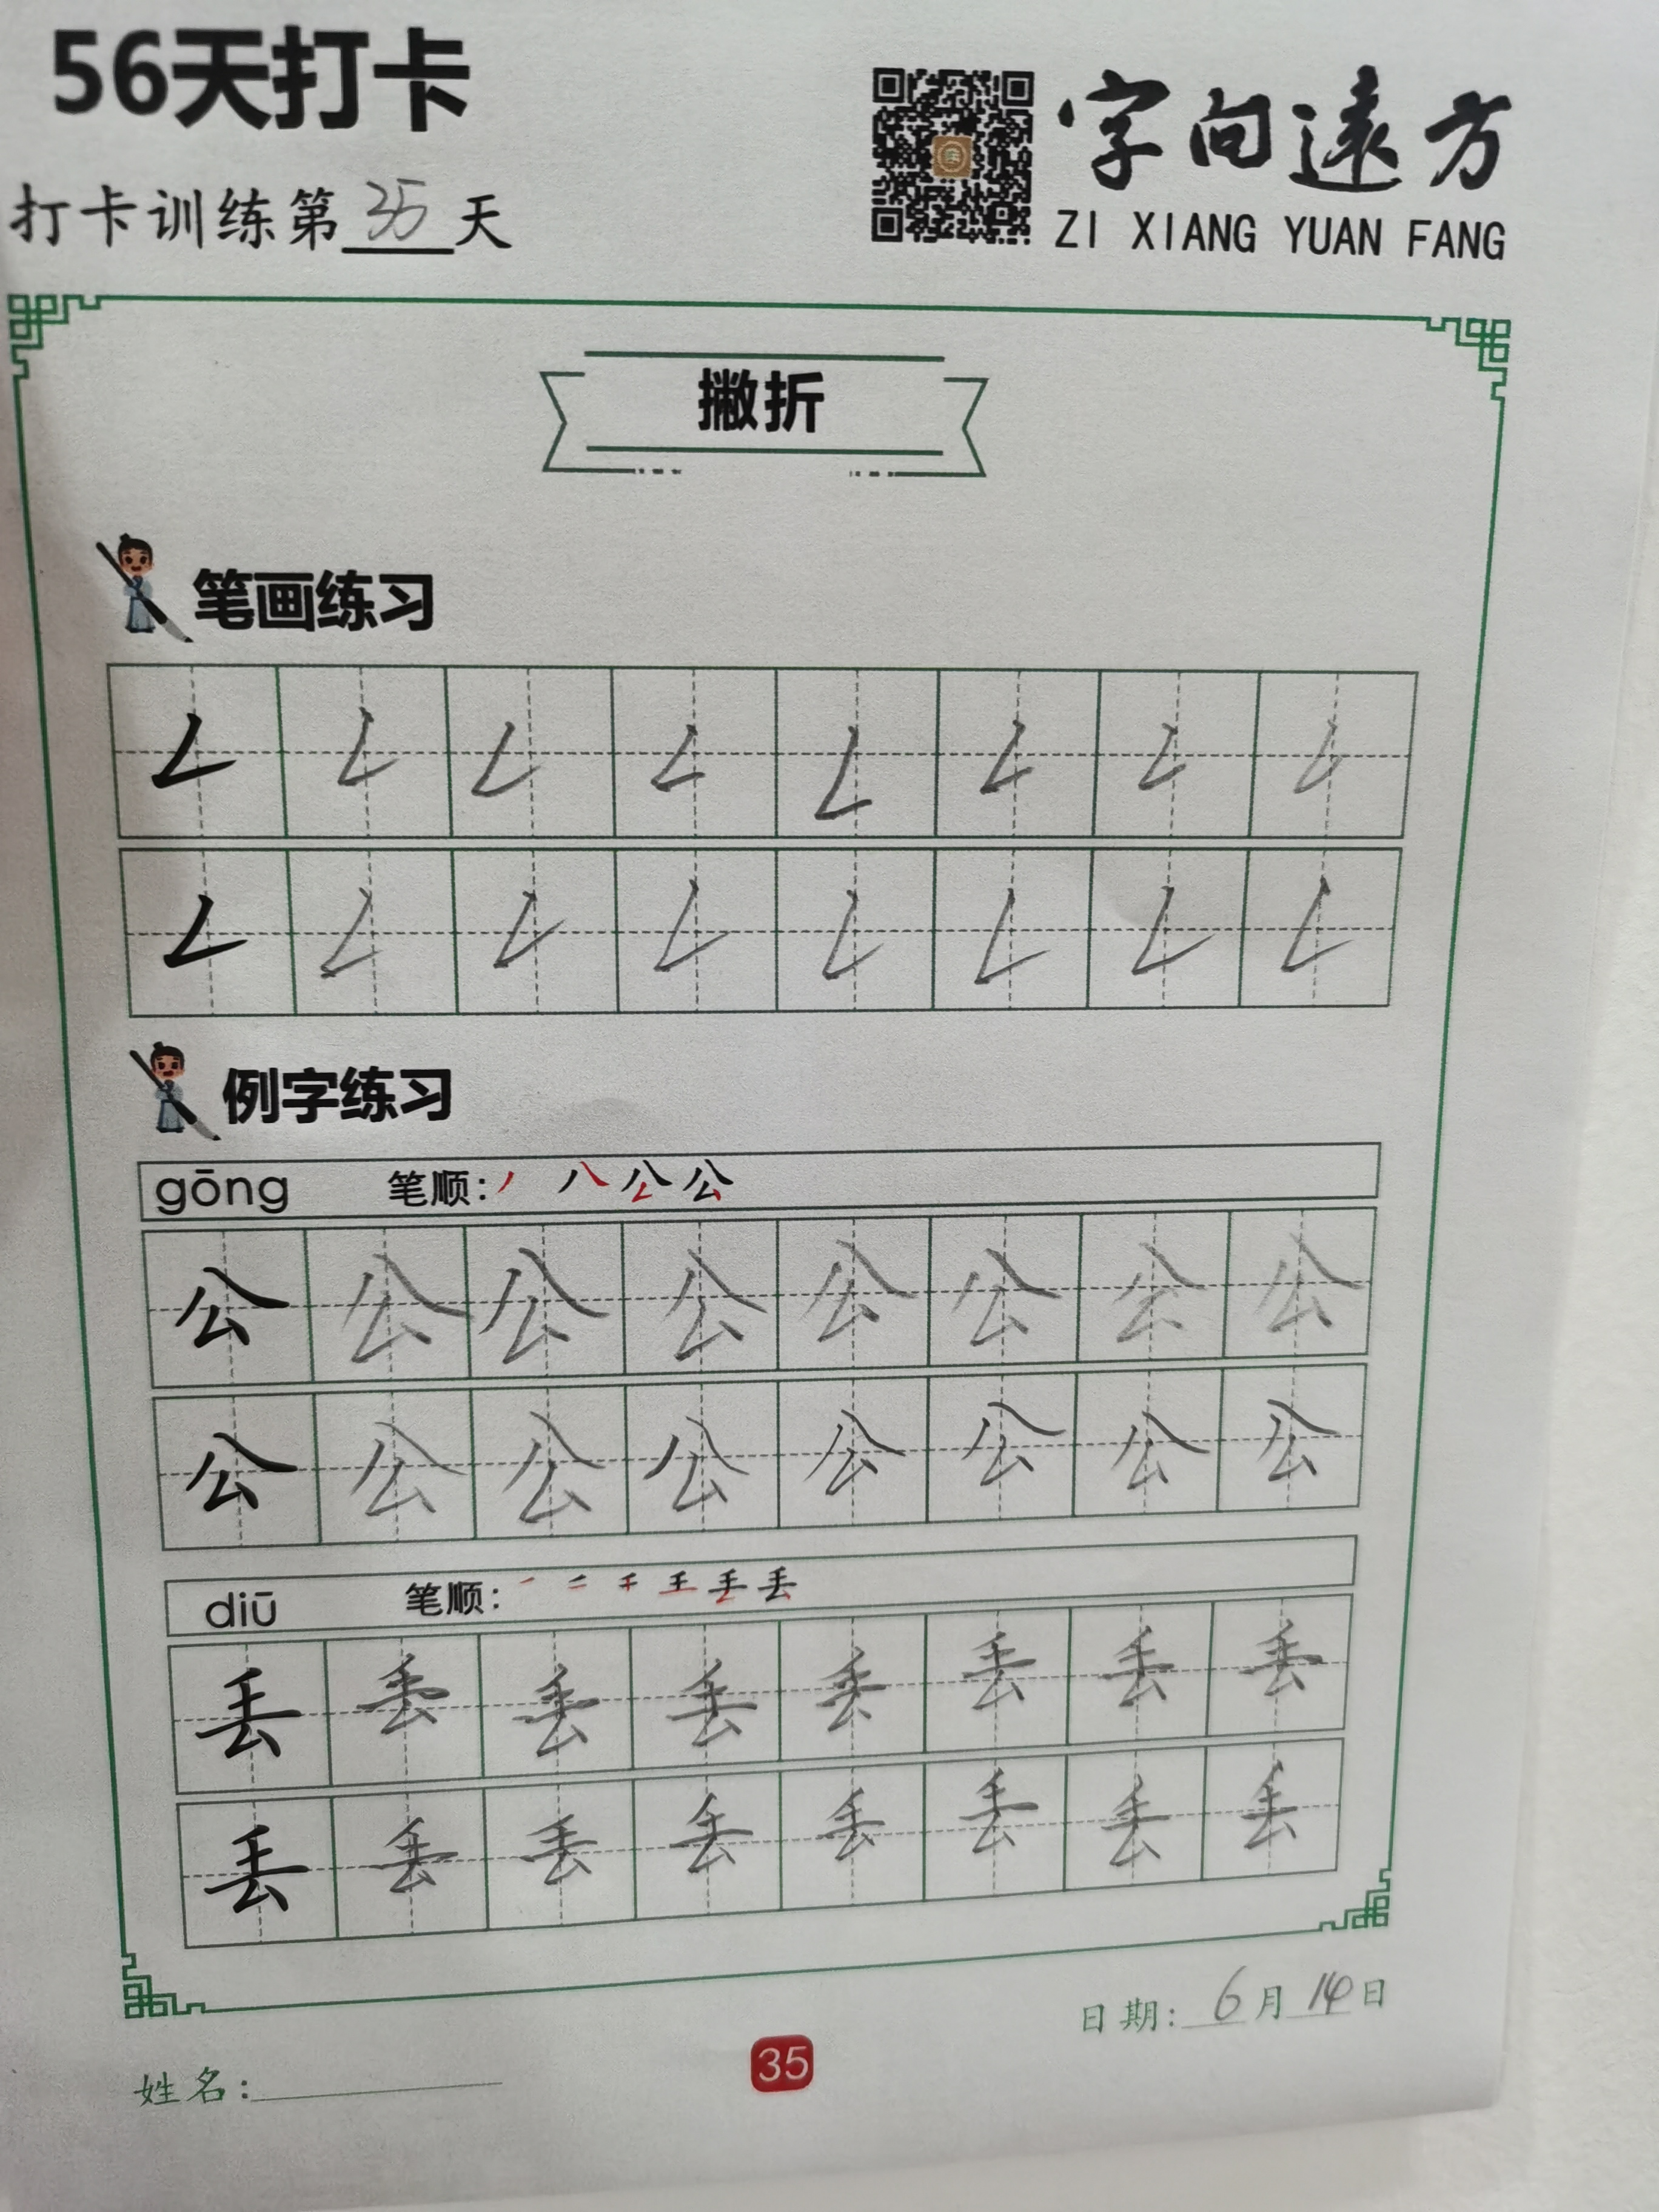 56天打卡
字向遠方
ZI XIANG YUAN FANG
打卡训练第35天
撇折
笔画练习
例字练习
gōng 笔顺: 丿 八 公 公
公 公 公 公 公 公 公 公
公 公 公 公 公 公 公 公
diū 笔顺:
丢 丢 丢 丢 丢 丢 丢 丢
丢 丢 丢 丢 丢 丢 丢 丢
日期: 6月14日
姓名:
35